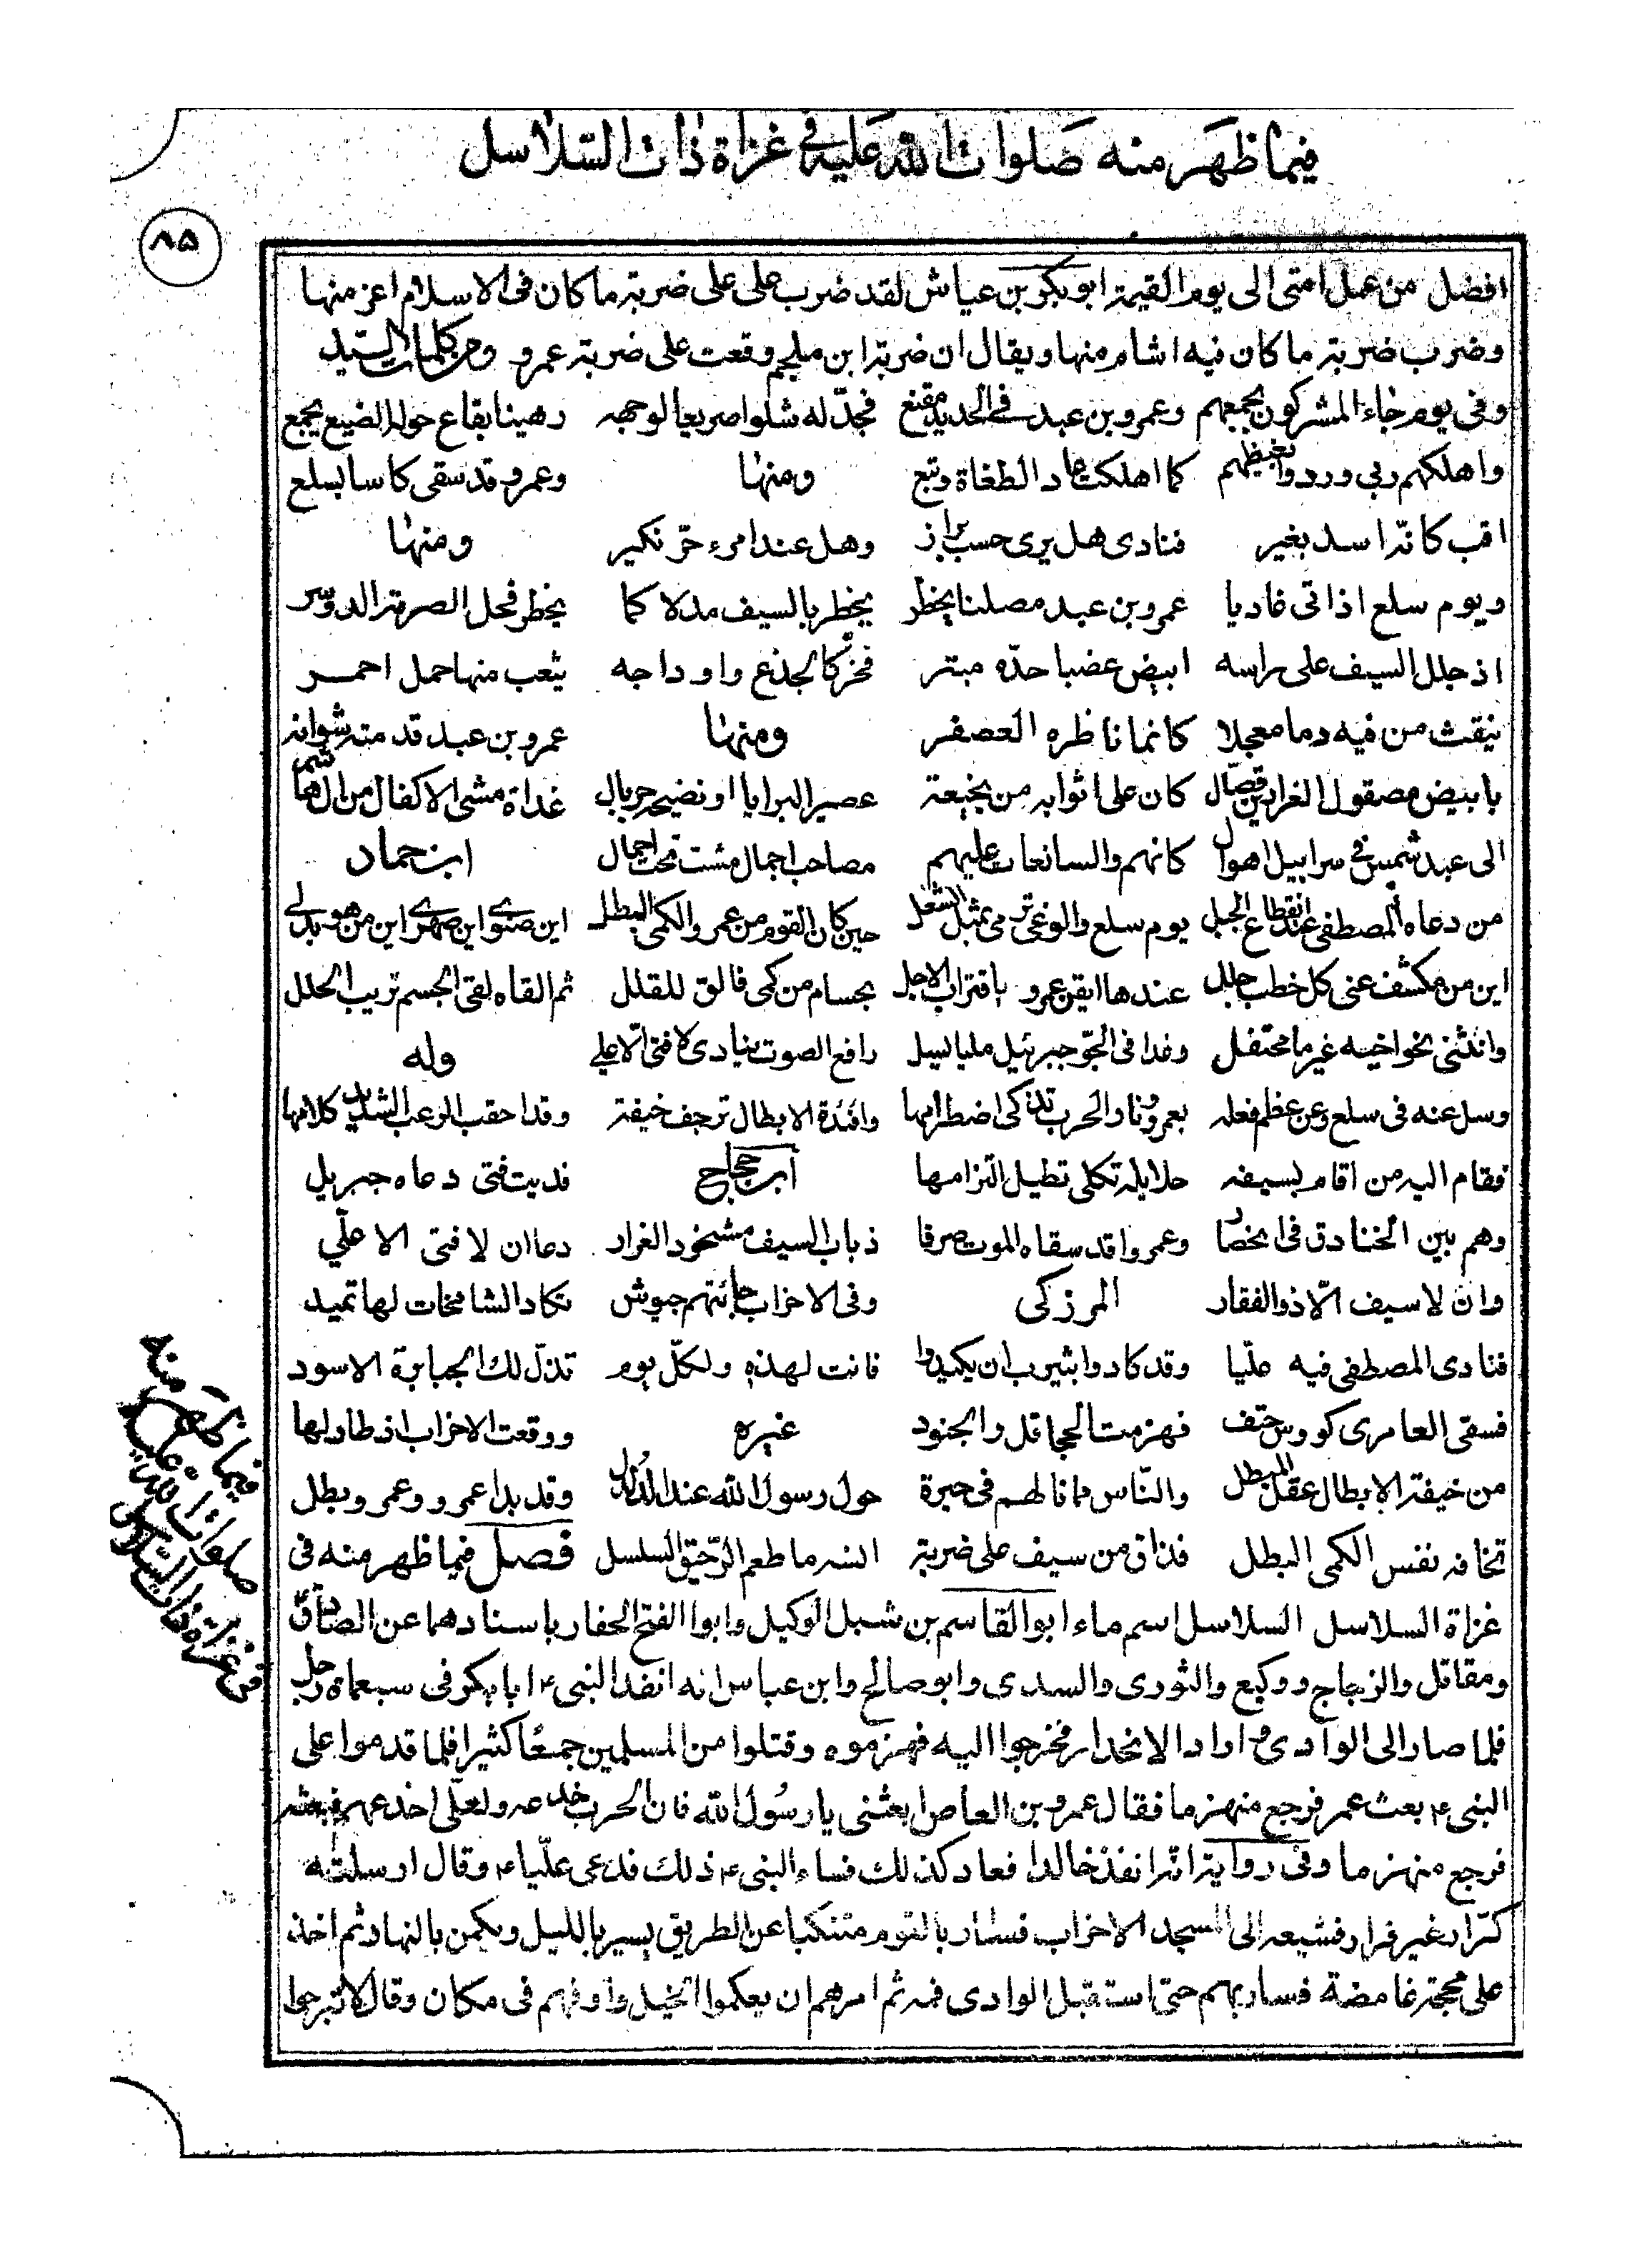 فيما ظهر منه صلوات الله عليه في غزاة ذات السلاسل
٨٥
افضل من عمل امتى الى يوم القيمة ابو بكر بن عياش لقد ضرب على على ضربة ما كان فى الاسلام اعز منها
وضرب ضربة ما كان فيه اشام منها ويقال ان ضربة ابن ملجم وقعت على ضربة عمرو ومن كلمات السيد
وفى يوم جاء المشركون بجمعهم وعمرو بن عبد فى الحديد مقنع فجدّ له شلوا صريعا لوجهه رهينا بقاع حوله الضبع يجمع
واهلكهم ربى وردوا بغيظهم كما اهلكت عاد الطغاة وتبع ومنها وعمرو قد سقى كاسا بسلع
اقب كانه اسد بغير فنادى هل يرى حسب براز وهل عند امرء حرّ نكير ومنها
ويوم سلع اذ اتى غاديا عمرو بن عبد مصلتا يخطر يخطر بالسيف مدلا كما يخطر فحل الصرمة الدوسر
اذ جلل السيف على راسه ابيض عضبا حدّه مبتر فخرّ كالجذع واوداجه يثعب منها حمل احمر
ينفث من فيه دما معجلا كانما ناظره العصفر ومنها عمرو بن عبد قد مته شوانه
بابيض مصقول الغرارين قصّال كان على اثوابه من نجيعة عصير البرايا او نضيح جريال غداة مشى الاكفال من ال هاشم
الى عبد شمس فى سرابيل اهوال كانهم والسانعات عليهم مصاحب اجمال مشت تحت اجمال ابن حماد
من دعاه المصطفى عند انقطاع الحبل يوم سلع والوغى ترمى بمثل الشعل حين كان القوم من عمرو الكمى البطل اين صنوى اين صهرى اين من هو بدلى
اين من يكشف عنى كل خطب جلل عندها ايقن عمرو باقتراب الاجل بحسام من كمى فالق للقلل ثم القاه لقى الجسم تريب الحلل
وانثنى نحو اخيه غير ما محتفل وغدا فى الجوّ جبرئيل مليا يسل رافع الصوت ينادى لا فتى الا على وله
وسل عنه فى سلع وعن عظم فعله بعمرو ونار الحرب تذكى اضطرامها وافئدة الابطال ترجف خيفة وقد احقب الرعب الشديد كلامها
فقام اليه من اقام بسيفه حلايله تكلى تطيل التزامها ابن حجاج فديت فتى دعاه جبريل
وهم بين الخنادق فى انحصار وعمروا قد سقاه الموت صرفا ذباب السيف مشحوذ الغرار دعا ان لا فتى الا علّي
وان لا سيف الّا ذو الفقار المرزكى وفى الاحزاب جائتهم جيوش تكاد الشامخات لها تميد
فنادى المصطفى فيه عليا وقد كادوا بيثرب ان يكيدوا فانت لهذه ولكلّ يوم تذلّ لك الجبابرة الاسود
فسقى العامرى كووس حتف فهزمت الجحافل والجنود غيره ووقعت الاحزاب اذ طار لها
من خيفة الابطال عقل البطل والنّاس مما نالهم فى حيرة حول رسول الله عند الدلدل وقد بدا عمرو وعمرو بطل
تخافه نفس الكمى البطل فذاق من سيف على ضربة انسته ما طعم الرّحيق السلسل فصل فيما ظهر منه فى
غزاة السلاسل السلاسل اسم ماء ابو القاسم بن شبل الوكيل وابوا الفتح الحفار باسنادهما عن الصادق
ومقاتل والزجاج ووكيع والثورى والسدى وابو صالح وابن عباس انه انفذ النبى ء ابا بكر فى سبعماة رجل
فلما صار الى الوادى و اراد الانحدار فخرجوا اليه فهزموه وقتلوا من المسلمين جمعًا كثيرا فلما قدموا على
النبى ء بعث عمر فرجع منهزما فقال عمرو بن العاص ابعثنى يا رسول الله فان الحرب خدعه ولعلّى اخدعهم فبعثه
فرجع منهزما وفى رواية انه انفذ خالدا فعاد كذلك فساء النبى ء ذلك فدعى عليّا ء وقال ارسلته
كرّار غير فرار فشيعه الى المسجد الاحزاب فسار بالقوم متنكبا عن الطريق يسير بالليل ويكمن بالنهار ثم اخذ
على محجة غامضة فسار بهم حتى استقبل الوادى فمه ثم امرهم ان يعكموا الخيل واوقفهم فى مكان وقال لا تبرحوا
فيما ظهر منه
صلوات الله عليه
فى غزاة ذات السلاسل